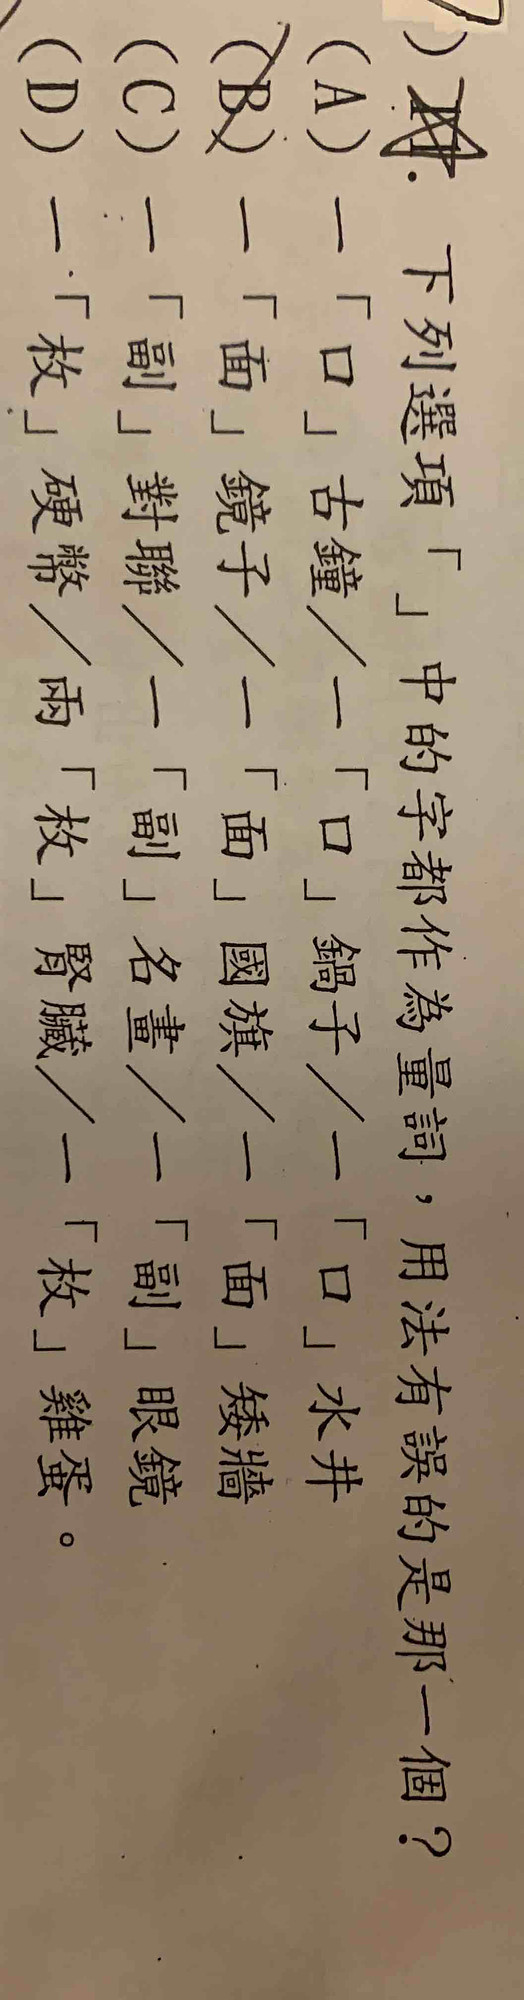 ) 11. 下列選項「 」中的字都作為量詞，用法有誤的是那一個？
(A) 一「口」古鐘／一「口」鍋子／一「口」水井
(B) 一「面」鏡子／一「面」國旗／一「面」矮牆
(C) 一「副」對聯／一「副」名畫／一「副」眼鏡
(D) 一「枚」硬幣／兩「枚」腎臟／一「枚」雞蛋。